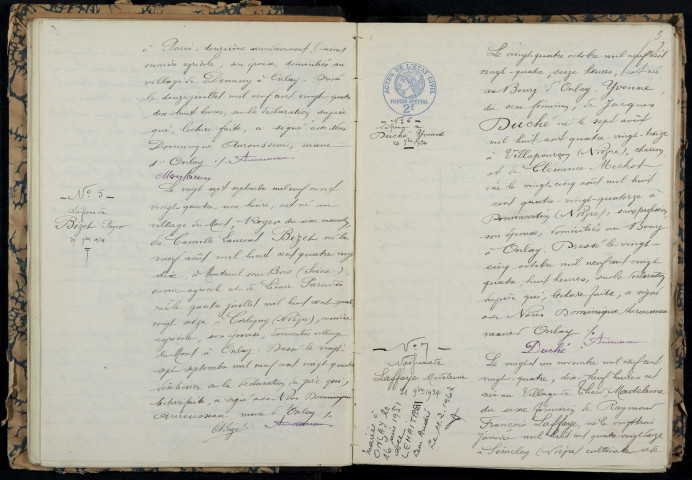 à Paris, douzième arrondissement, (Seine)
ouvrière agricole, son épouse, domiciliés au
village de Donnay à Onlay. Dressé
le douze juillet mil neuf cent vingt quatre
dix huit heures, sur la déclaration du père
qui, lecture faite, a signé avec Nous
Dominique Aurousseau, maire
d'Onlay %
Nº 5
Bizet Roger
Le vingt sept septembre mil neuf cent
vingt quatre, une heure, est né au
village du Mont, Roger du sexe masculin,
de Camille Laurent Bizet né le
neuf août mil huit cent quatre vingt
dix, à Montreuil sous Bois (Seine)
ouvrier agricole et de
née le quatre juillet mil huit cent quatre
vingt seize à Corbigny (Nièvre), ouvrière
agricole, son épouse, domiciliés village
du Mont à Onlay. Dressé le vingt
sept septembre mil neuf cent vingt quatre
heures, sur la déclaration du père qui,
lecture faite, a signé avec Nous Dominique
Aurousseau maire d'Onlay %
Bizet
3
ACTES DE L'ÉTAT CIVIL
PAPIER SPÉCIAL
2F
Nº 6
Duché Yvonne
Le vingt quatre octobre mil neuf cent
vingt quatre, seize heures, est née
au Bourg d'Onlay, Yvonne,
du sexe féminin, de Jacques
Duché né le sept août
mil huit cent quatre vingt treize
à Villapourçon (Nièvre), charron,
et de Clémence Michot
née le vingt cinq août mil huit
cent quatre vingt quatorze à
(Nièvre), sans profession,
son épouse, domiciliés au Bourg
d'Onlay. Dressé le vingt
cinq octobre mil neuf cent vingt
quatre, huit heures, sur la déclaration
du père qui, lecture faite, a signé
avec Nous Dominique Aurousseau
maire d'Onlay %
Duché
Nº 7
Naissance
Laffaye Madeleine
21 9bre 1924
Mariée à
ONLAY le
1951
avec
Le 11.2.1962
Le vingt un novembre mil neuf cent
vingt quatre, dix neuf heures est
née au Village de Madeleine
du sexe féminin, de Raymond
François Laffaye, né le vingt trois
janvier mil huit cent quatre vingt
à Sémelay (Nièvre) cultivateur et de